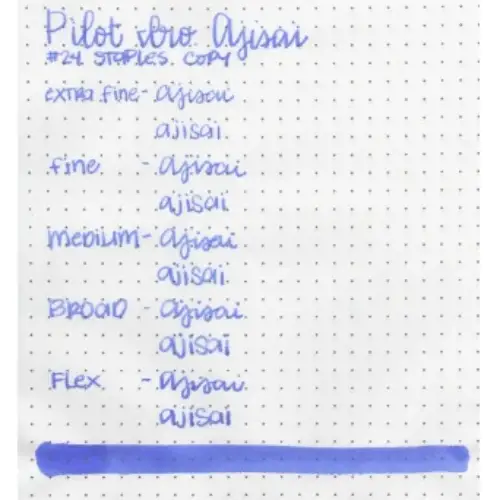 Pilot iro Ajisai
#24 STAPLES COPY
extra fine - ajisai
ajisai
fine - ajisai
ajisai
MEDIUM - ajisai
ajisai
BROAD - ajisai
ajisai
Flex - ajisai
ajisai